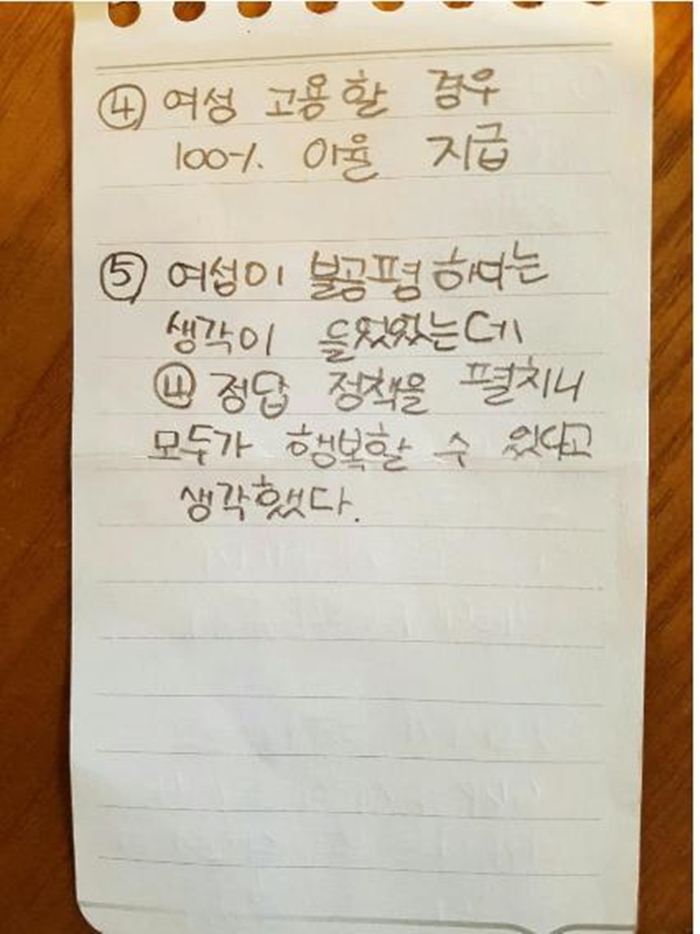 ④ 여성 고용할 경우
100%. 이율 지급
⑤ 여성이 불공평하다는
생각이 들었었는데
④ 정답 정책을 펼치니
모두가 행복할 수 있다고
생각했다.